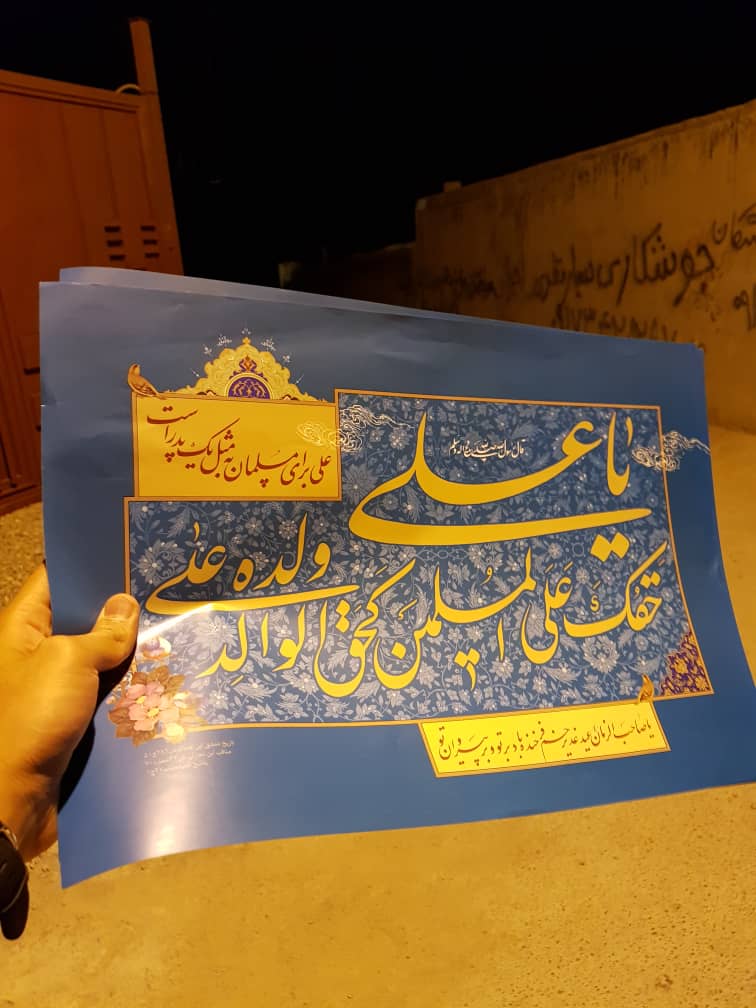 جوشکاری سیار
علی برای مسلمانان به مثل یک پدر است
قال رسول الله صلی الله علیه و آله و سلم
یا علی
حَقُّکَ عَلَی المُسلِمین کَحَقِّ الوالِدِ علی ولده
یا صاحب الزمان عید غدیر خم فرخنده باد بر تو و بر پیروان تو